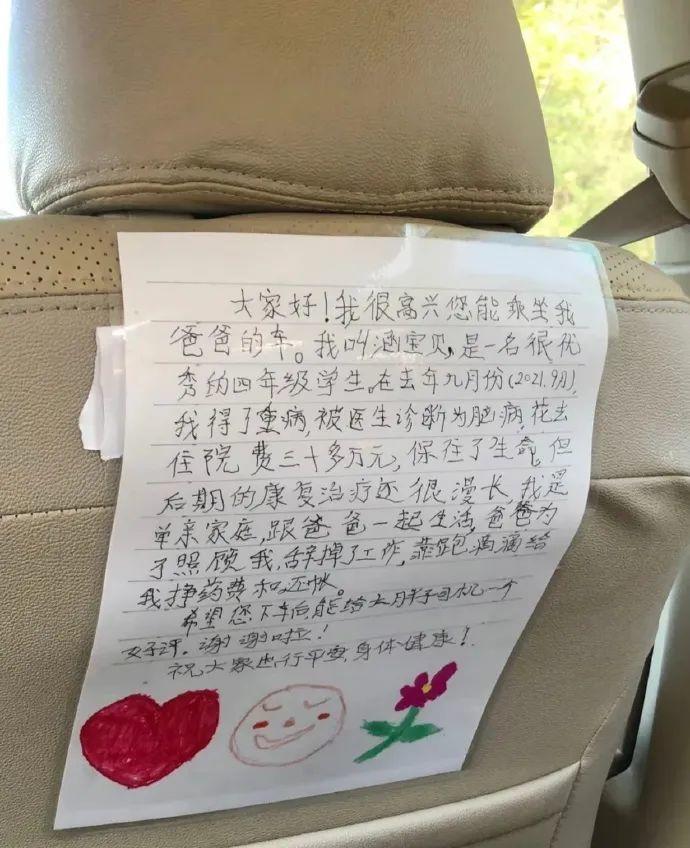 大家好！我很高兴您能乘坐我
爸爸的车。我叫涵宝贝，是一名很优
秀的四年级学生。在去年九月份(2021.9月)，
我得了重病，被医生诊断为脑病，花去
住院费三十多万元，保住了生命，但
后期的康复治疗还很漫长，我是
单亲家庭，跟爸爸一起生活，爸爸为
了照顾我，辞掉了工作，靠跑滴滴给
我挣药费和还帐。
希望您下车后能给大胖子司机一个
好评。谢谢啦！
祝大家出行平安，身体健康！